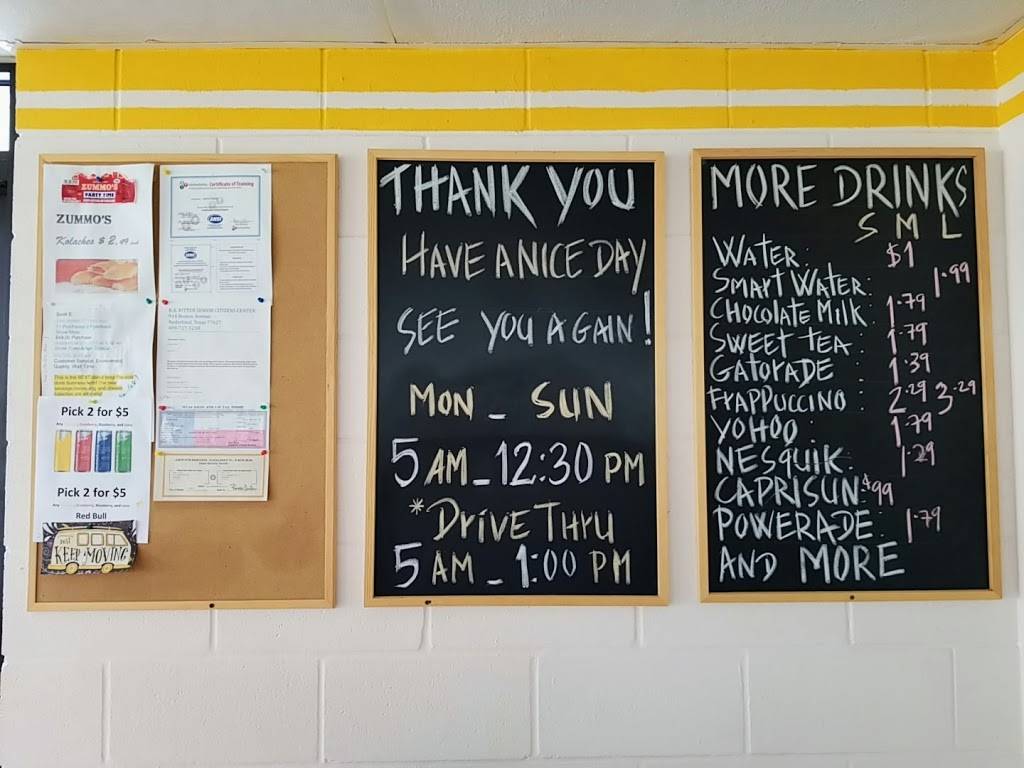 ZUMMO'S
PARTY TIME
ZUMMO'S
Kolaches $ 2.49
Pick 2 for $5
Pick 2 for $5
Red Bull
JUST
KEEP MOVING
Certificate of Training
ANSI
THANK YOU
HAVE A NICE DAY
SEE YOU AGAIN!
MON - SUN
5 AM - 12:30 PM
*DRIVE THRU
5 AM - 1:00 PM
MORE DRINKS
S M L
WATER: $1
SMART WATER: 1.99
CHOCOLATE MILK: 1.79
SWEET TEA: 1.79
GATORADE: 1.39
FRAPPUCCINO: 2.29 3.29
YOHOO: 1.79
NESQUIK: 1.29
CAPRISUN: $99
POWERADE: 1.79
AND MORE